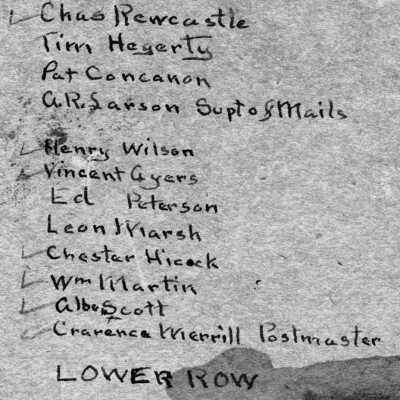 Chas Rewcastle
Tim Hegerty
Pat Concanon
A.R. Larson Supt of Mails
Henry Wilson
Vincent Gyers
Ed Peterson
Leon Marsh
Chester Hicock
Wm Martin
Scott
Crarence Merrill Postmaster
LOWER ROW